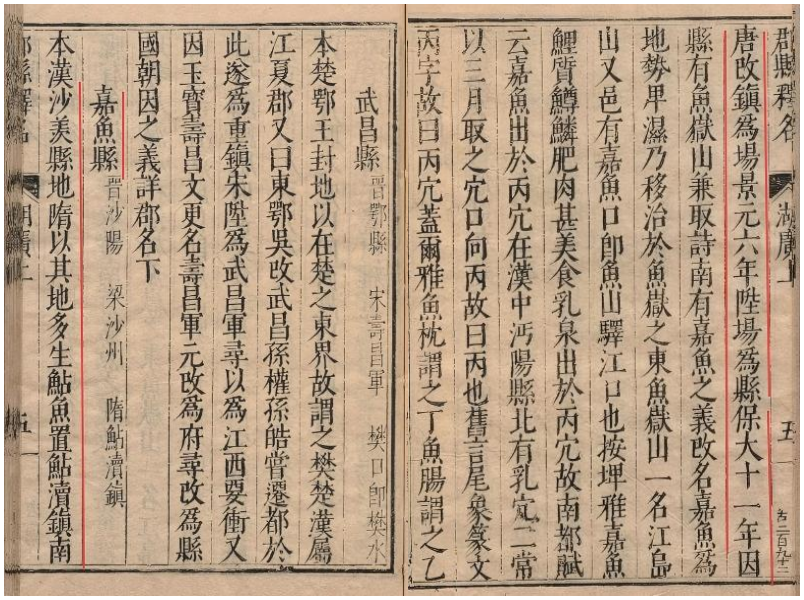 武昌縣 晉鄂縣 宋壽昌軍 樊口卽樊水
本楚鄂王封地以在楚之東界故謂之樊楚漢屬
江夏郡又曰東鄂吳改武昌孫權孫皓嘗遷都於
此遂爲重鎮宋陞爲武昌軍尋以爲江西要衝又
因玉寶壽昌文更名壽昌軍元改爲府尋改爲縣
國朝因之義詳郡名下
嘉魚縣 晋沙陽 梁沙州 隋鮎瀆鎮
本漢沙羡縣地隋以其地多生鮎魚置鮎瀆鎮南
郡縣釋名 湖廣上 五
郡縣釋名 湖廣上 五
唐改鎮爲場景元六年陞場爲縣保大十一年因
縣有魚嶽山兼取詩南有嘉魚之義改名嘉魚爲
地勢卑濕乃移治於魚嶽之東魚嶽山一名江島
山又邑有嘉魚口卽魚山驛江口也按埤雅嘉魚
鯉質鱒鱗肥肉甚美食乳泉出於丙穴故南都賦
云嘉魚出於丙穴在漢中沔陽縣北有乳穴二常
以三月取之穴口向丙故曰丙也舊言尾象篆文
丙字故曰丙穴蓋爾雅魚枕謂之丁魚腸謂之乙